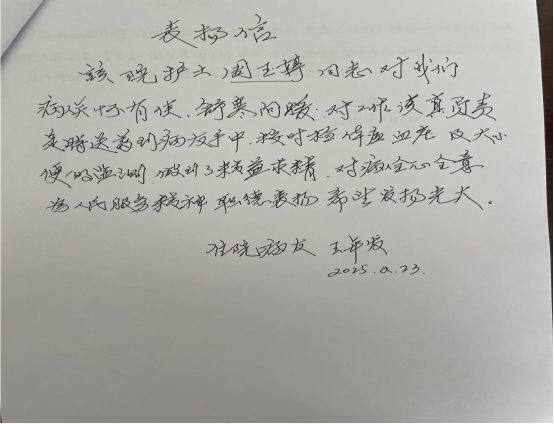 表扬信
該院护士周玉转同志对我们
病员怀有使,舒寒问暖.对工作认真负责
定时送药到病友手中,按时检体温血压及大小
便的监测,做到了精益求精,对病人全心全意
为人民服务精神 职德表扬 希望发扬光大。
住院病友 王年发
2025.2.23.